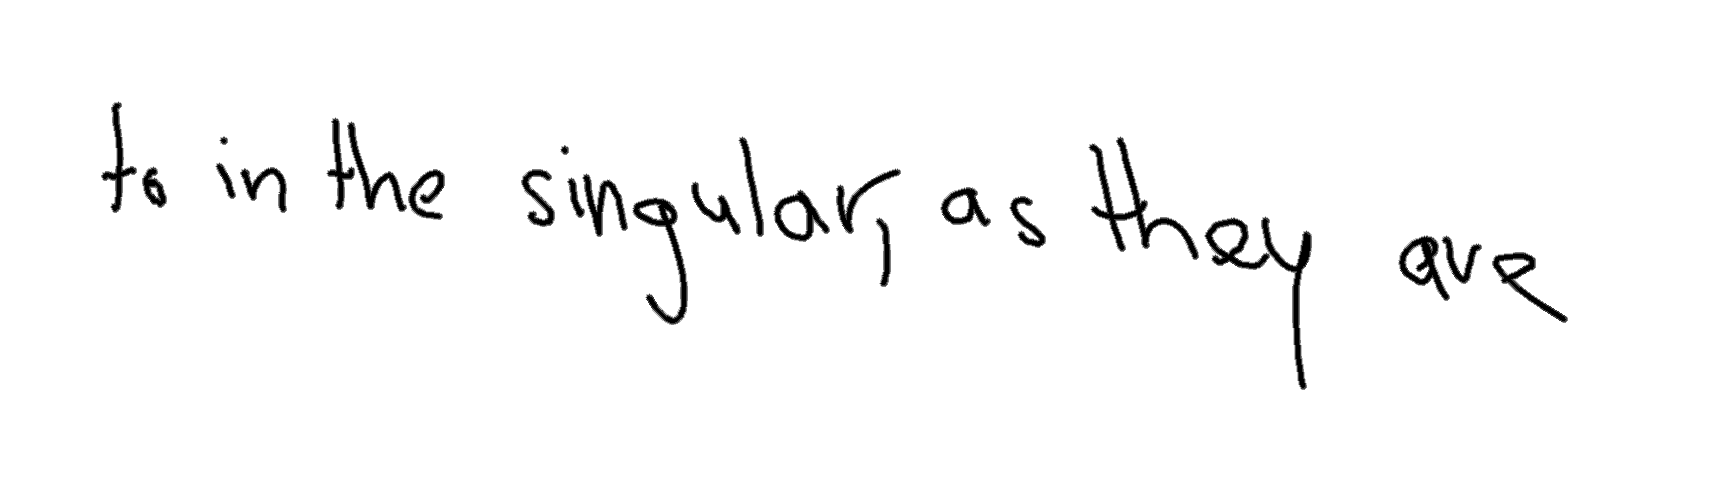 to in the singular, as they are